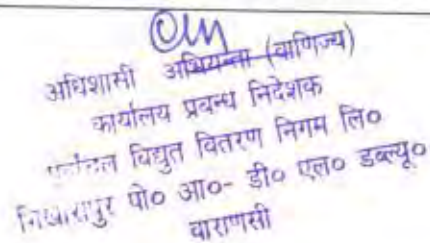 अधिशासी अभियन्ता (वाणिज्य)
कार्यालय प्रबन्ध निदेशक
विद्युत वितरण निगम लि०
पो० आ०- डी० एल० डब्ल्यू०
वाराणसी